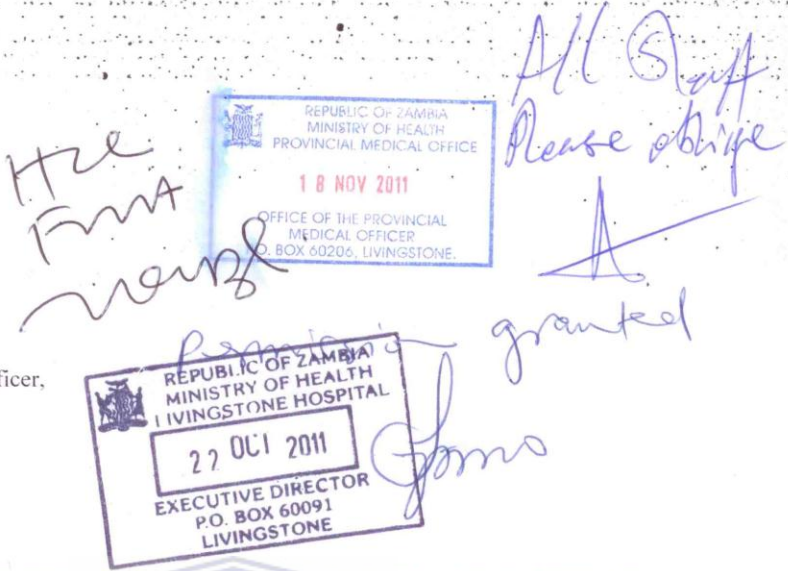 All Staff
Please oblige
REPUBLIC OF ZAMBIA
MINISTRY OF HEALTH
PROVINCIAL MEDICAL OFFICE
18 NOV 2011
OFFICE OF THE PROVINCIAL
MEDICAL OFFICER
P.O. BOX 60206, LIVINGSTONE.
Permission granted
ficer,
REPUBLIC OF ZAMBIA
MINISTRY OF HEALTH
LIVINGSTONE HOSPITAL
22 OCT 2011
EXECUTIVE DIRECTOR
P.O. BOX 60091
LIVINGSTONE